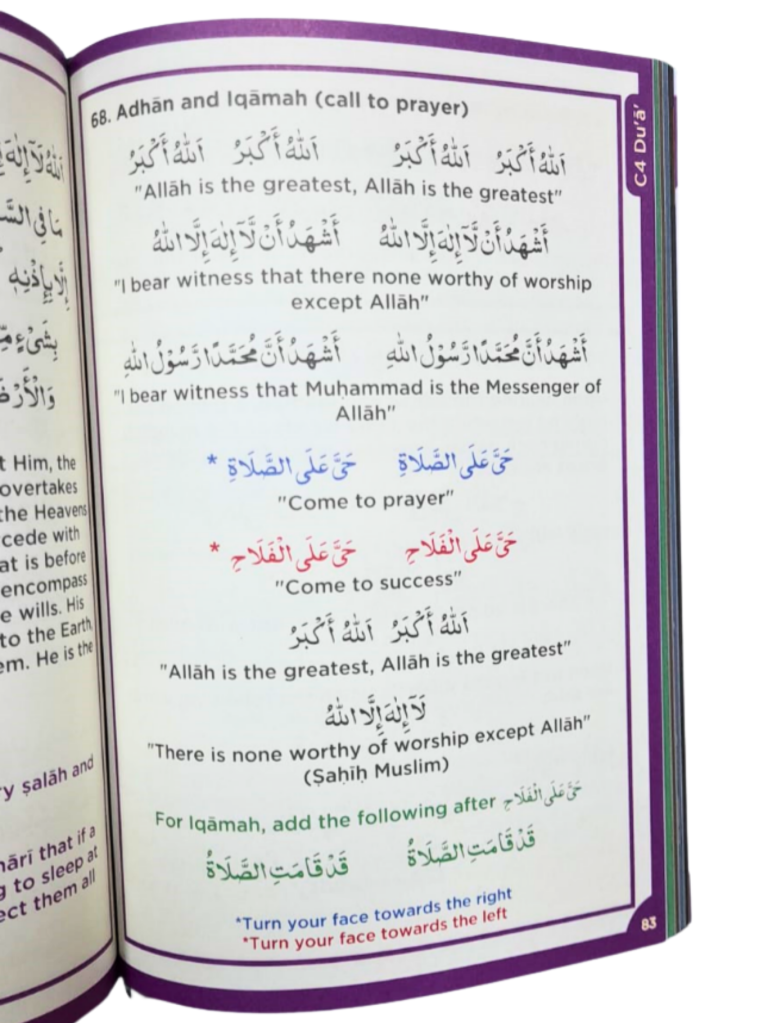 اللهُ لَآ إِلٰهَ
مَا فِي السَّ
إِلَّا بِإِذْنِهٖ
بِشَيْءٍ مِّ
وَالْأَرْضَ
t Him, the
overtakes
the Heavens
cede with
at is before
encompass
e wills. His
to the Earth
em. He is the
y ṣalāh and
ārī that if a
g to sleep at
ect them all
68. Adhān and Iqāmah (call to prayer)
اَللهُ أَكْبَرُ اَللهُ أَكْبَرُ اَللهُ أَكْبَرُ اَللهُ أَكْبَرُ
"Allāh is the greatest, Allāh is the greatest"
أَشْهَدُ أَنْ لَّآ إِلٰهَ إِلَّا اللهُ أَشْهَدُ أَنْ لَّآ إِلٰهَ إِلَّا اللهُ
"I bear witness that there none worthy of worship
except Allāh"
أَشْهَدُ أَنَّ مُحَمَّدًا رَّسُوْلُ اللهِ أَشْهَدُ أَنَّ مُحَمَّدًا رَّسُوْلُ اللهِ
"I bear witness that Muḥammad is the Messenger of
Allāh"
حَيَّ عَلَى الصَّلَاةِ حَيَّ عَلَى الصَّلَاةِ *
"Come to prayer"
حَيَّ عَلَى الْفَلَاحِ حَيَّ عَلَى الْفَلَاحِ *
"Come to success"
اَللهُ أَكْبَرُ اَللهُ أَكْبَرُ
"Allāh is the greatest, Allāh is the greatest"
لَآ إِلٰهَ إِلَّا اللهُ
"There is none worthy of worship except Allāh"
(Ṣaḥīḥ Muslim)
For Iqāmah, add the following after حَيَّ عَلَى الْفَلَاحِ
قَدْ قَامَتِ الصَّلَاةُ قَدْ قَامَتِ الصَّلَاةُ
*Turn your face towards the right
*Turn your face towards the left
C4 Du'ā'
83